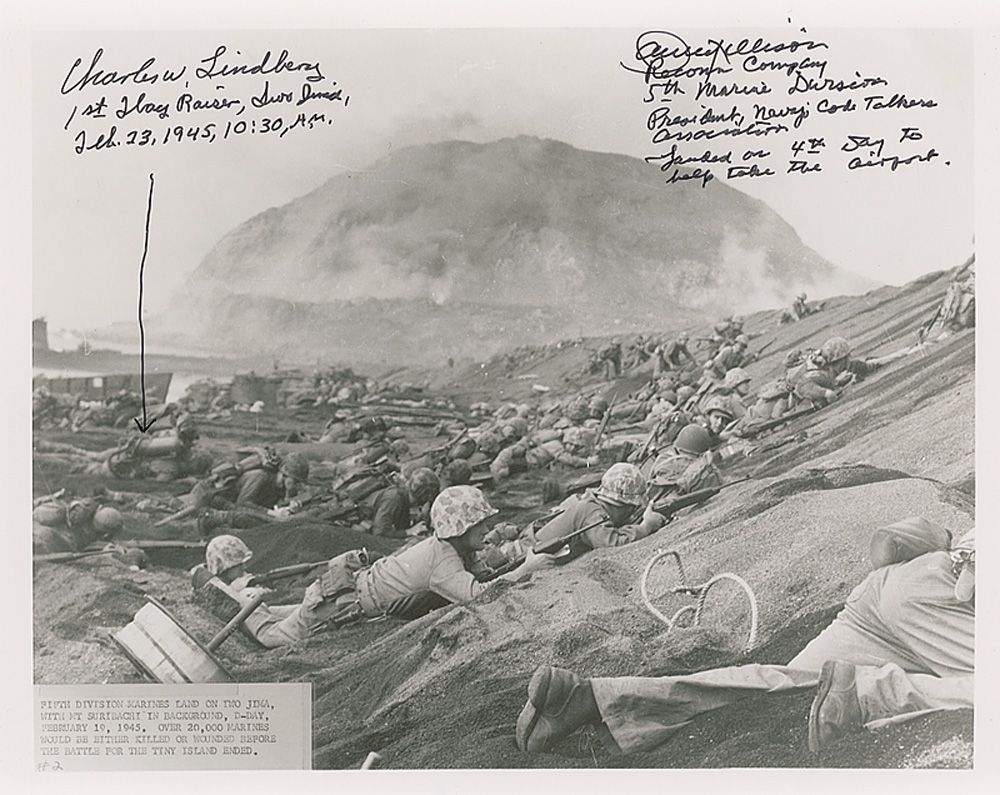 Charles W. Lindberg
1st Flag Raiser, Iwo Jima,
Feb. 23, 1945, 10:30, A.M.
Ellison
Reconn Company
5th Marine Division
President, Navajo Code Talkers
Association
Landed on 4th Day to
help take the airport.
FIFTH DIVISION MARINES LAND ON IWO JIMA,
WITH MT SURIBACHI IN BACKGROUND, D-DAY,
FEBRUARY 19, 1945. OVER 20,000 MARINES
WOULD BE EITHER KILLED OR WOUNDED BEFORE
THE BATTLE FOR THE TINY ISLAND ENDED.
#2